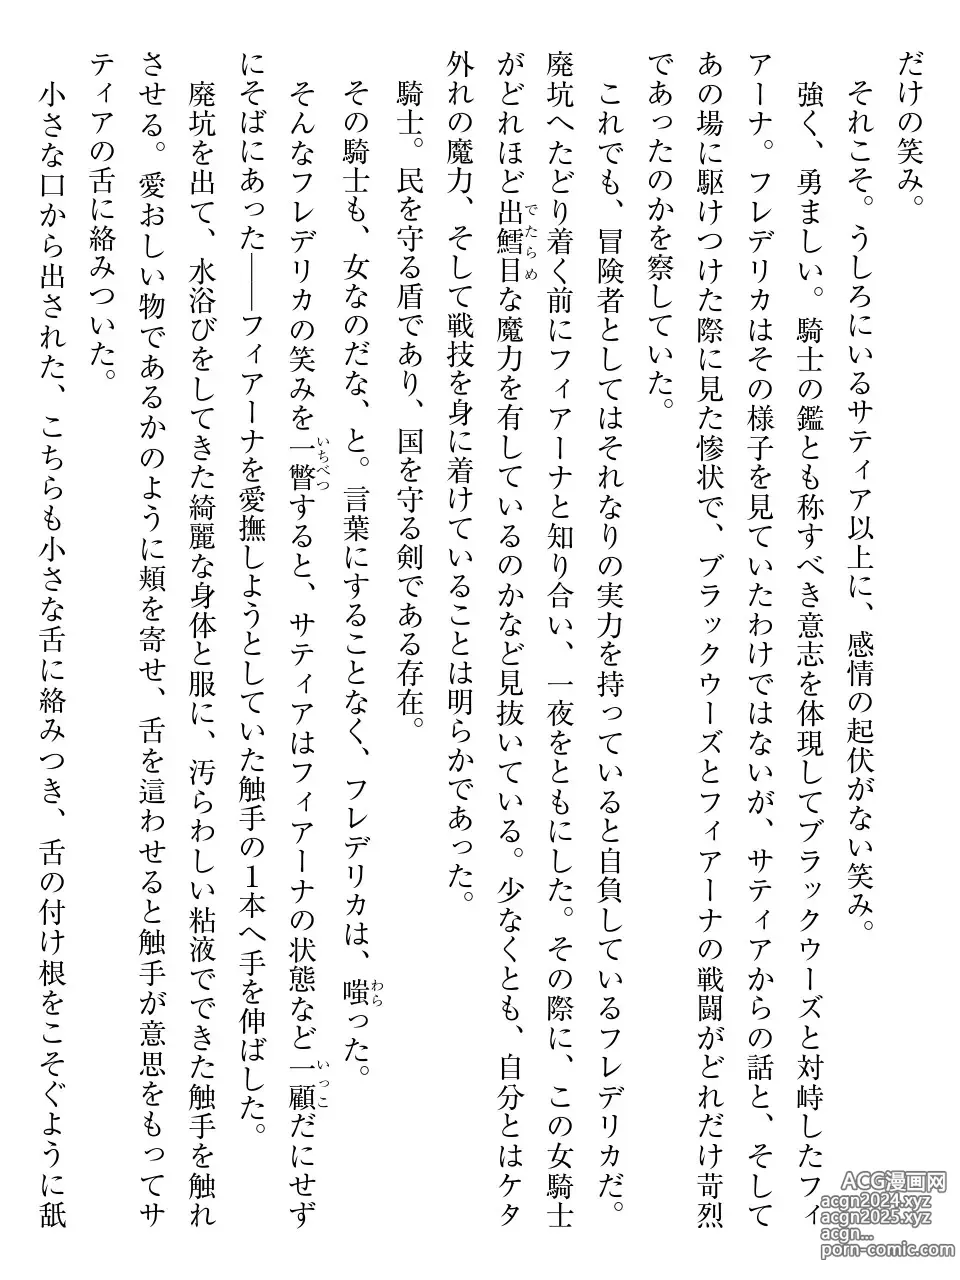 だけの笑み。
それこそ。うしろにいるサティア以上に、感情の起伏がない笑み。
強く、勇ましい。騎士の鑑とも称すべき意志を体現してブラックウーズと対峙したフィ
アーナ。フレデリカはその様子を見ていたわけではないが、サティアからの話と、そして
あの場に駆けつけた際に見た惨状で、ブラックウーズとフィアーナの戦闘がどれだけ苛烈
であったのかを察していた。
これでも、冒険者としてはそれなりの実力を持っていると自負しているフレデリカだ。
廃坑へたどり着く前にフィアーナと知り合い、一夜をともにした。その際に、この女騎士
がどれほど出鱈目な魔力を有しているのかなど見抜いている。少なくとも、自分とはケタ
でたらめ
外れの魔力、そして戦技を身に着けていることは明らかであった。
騎士。民を守る盾であり、国を守る剣である存在。
その騎士も、女なのだな、と。言葉にすることなく、フレデリカは、嗤った。
わら
そんなフレデリカの笑みを一瞥すると、サティアはフィアーナの状態など一顧だにせず
いちべつ
いっこ
にそばにあった――フィアーナを愛撫しようとしていた触手の1本へ手を伸ばした。
廃坑を出て、水浴びをしてきた綺麗な身体と服に、汚らわしい粘液でできた触手を触れ
させる。愛おしい物であるかのように頬を寄せ、舌を這わせると触手が意思をもってサ
ティアの舌に絡みついた。
小さな口から出された、こちらも小さな舌に絡みつき、舌の付け根をこそぐように舐
ACG漫画网
acgn2024.xyz
acgn2025.xyz
acgn...
porn-comic.com